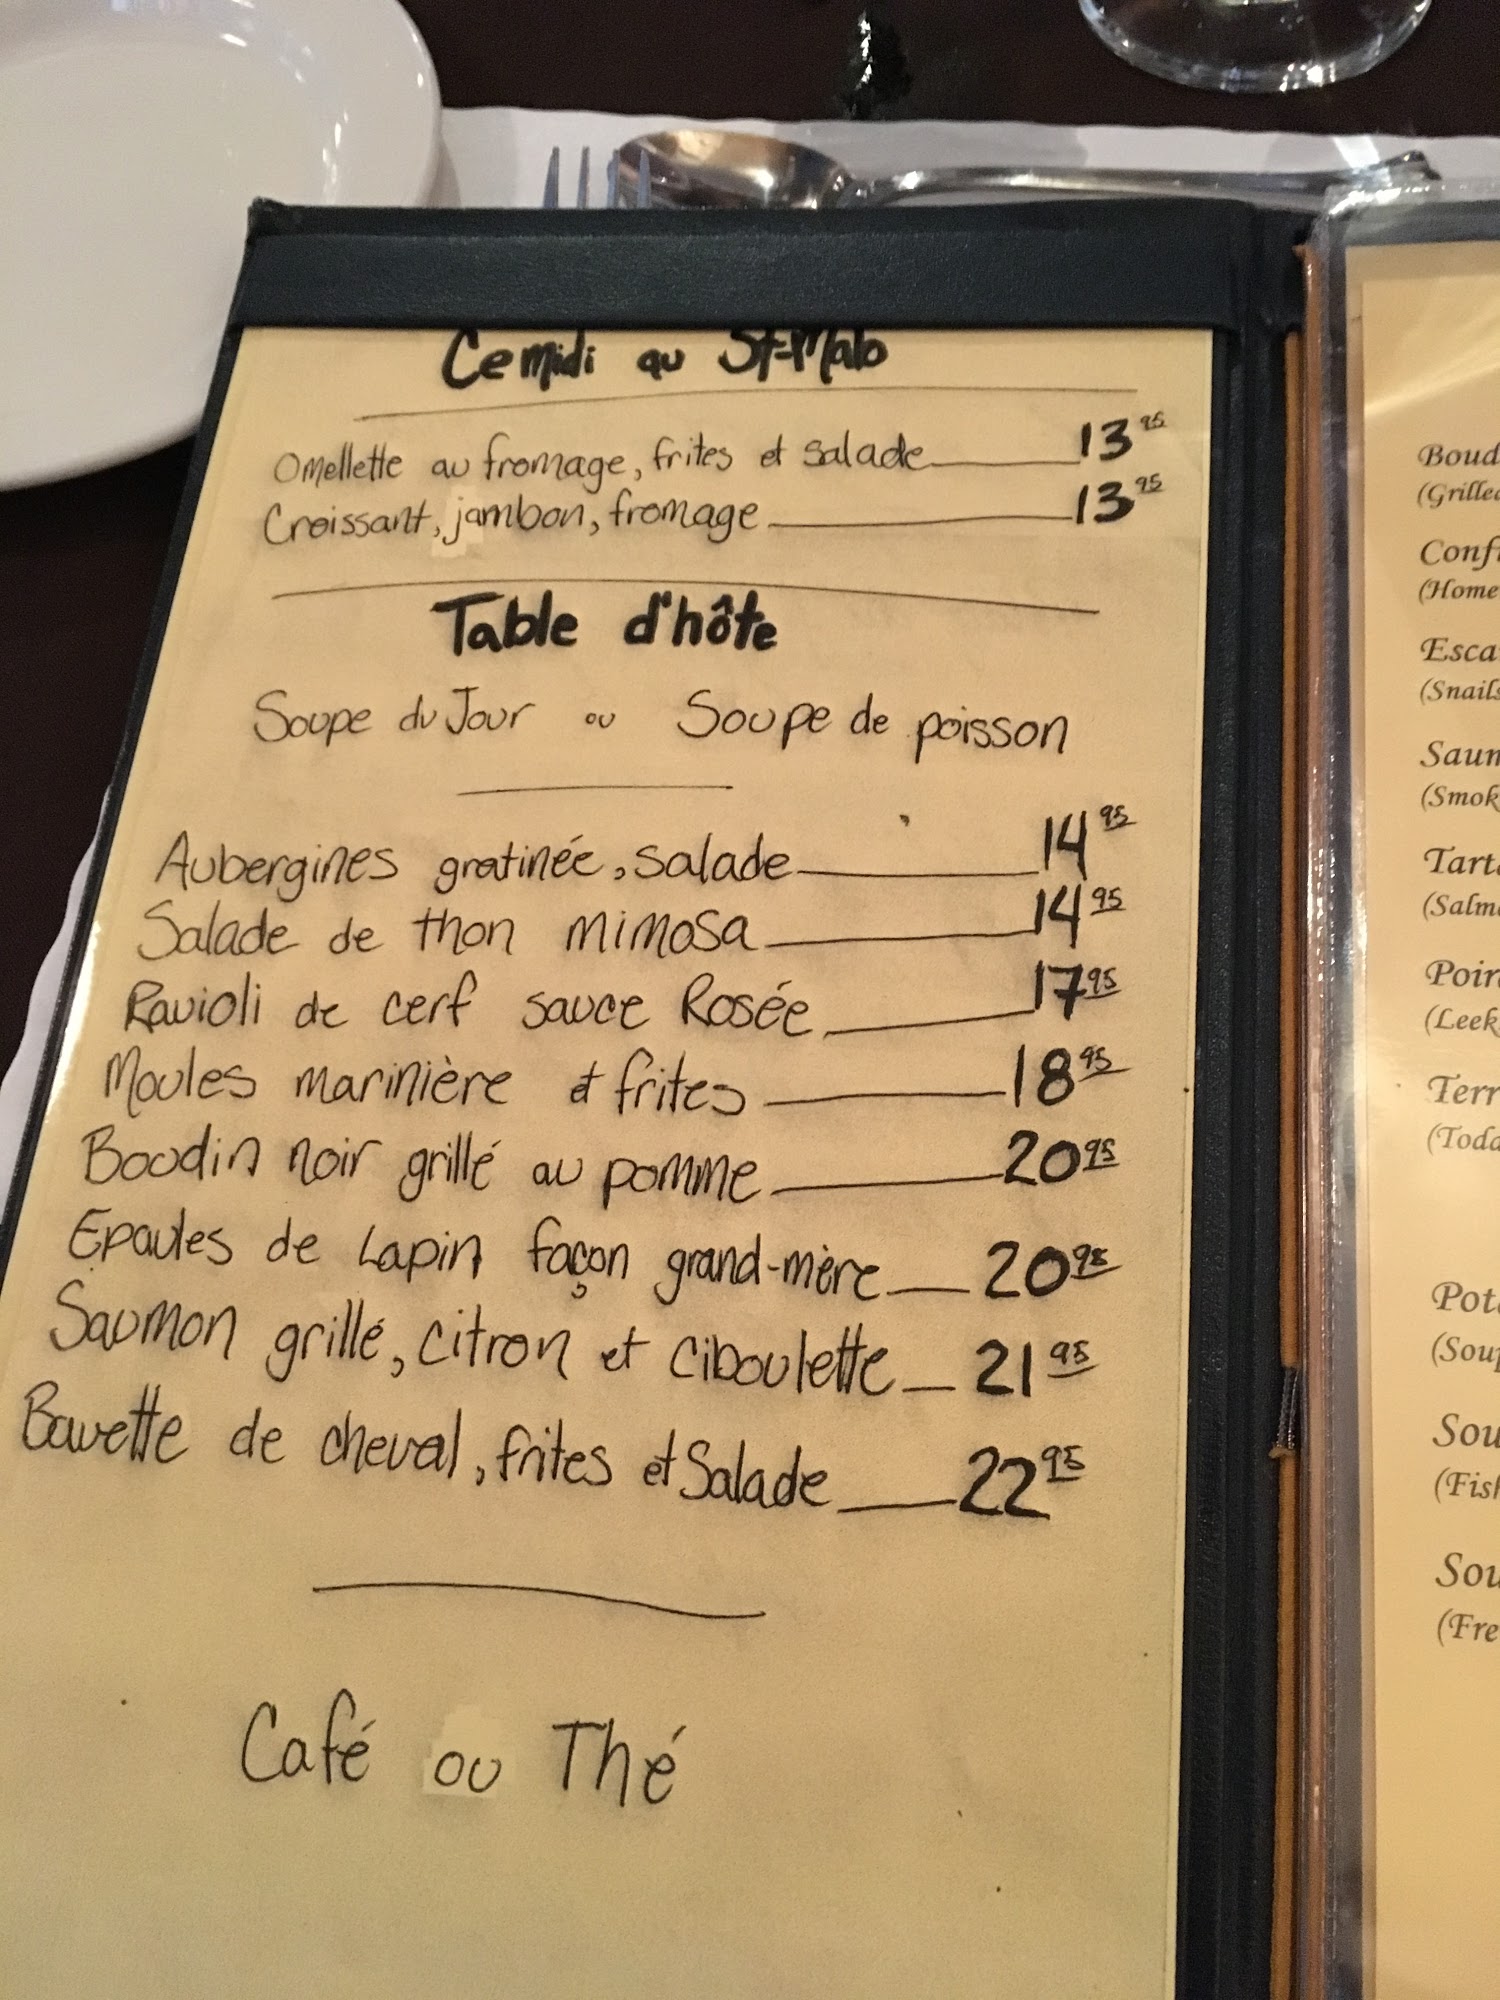 Ce midi au St-Malo
Omellette au fromage, frites et salade 13 95
Croissant, jambon, fromage 13 95
Table d'hôte
Soupe du Jour ou Soupe de poisson
Aubergines gratinée, salade 14 95
Salade de thon mimosa 14 95
Ravioli de cerf sauce Rosée 17 95
Moules marinière et frites 18 95
Boudin noir grillé au pomme 20 95
Epaules de Lapin façon grand-mère 20 95
Saumon grillé, citron et ciboulette 21 95
Bavette de cheval, frites et Salade 22 95
Café ou Thé
Boud
(Grilled
Conf
(Home
Esca
(Snails
Saum
(Smok
Tart
(Salm
Poir
(Leek
Terr
(Toda
Pot
(Soup
Sou
(Fish
Sou
(Fre